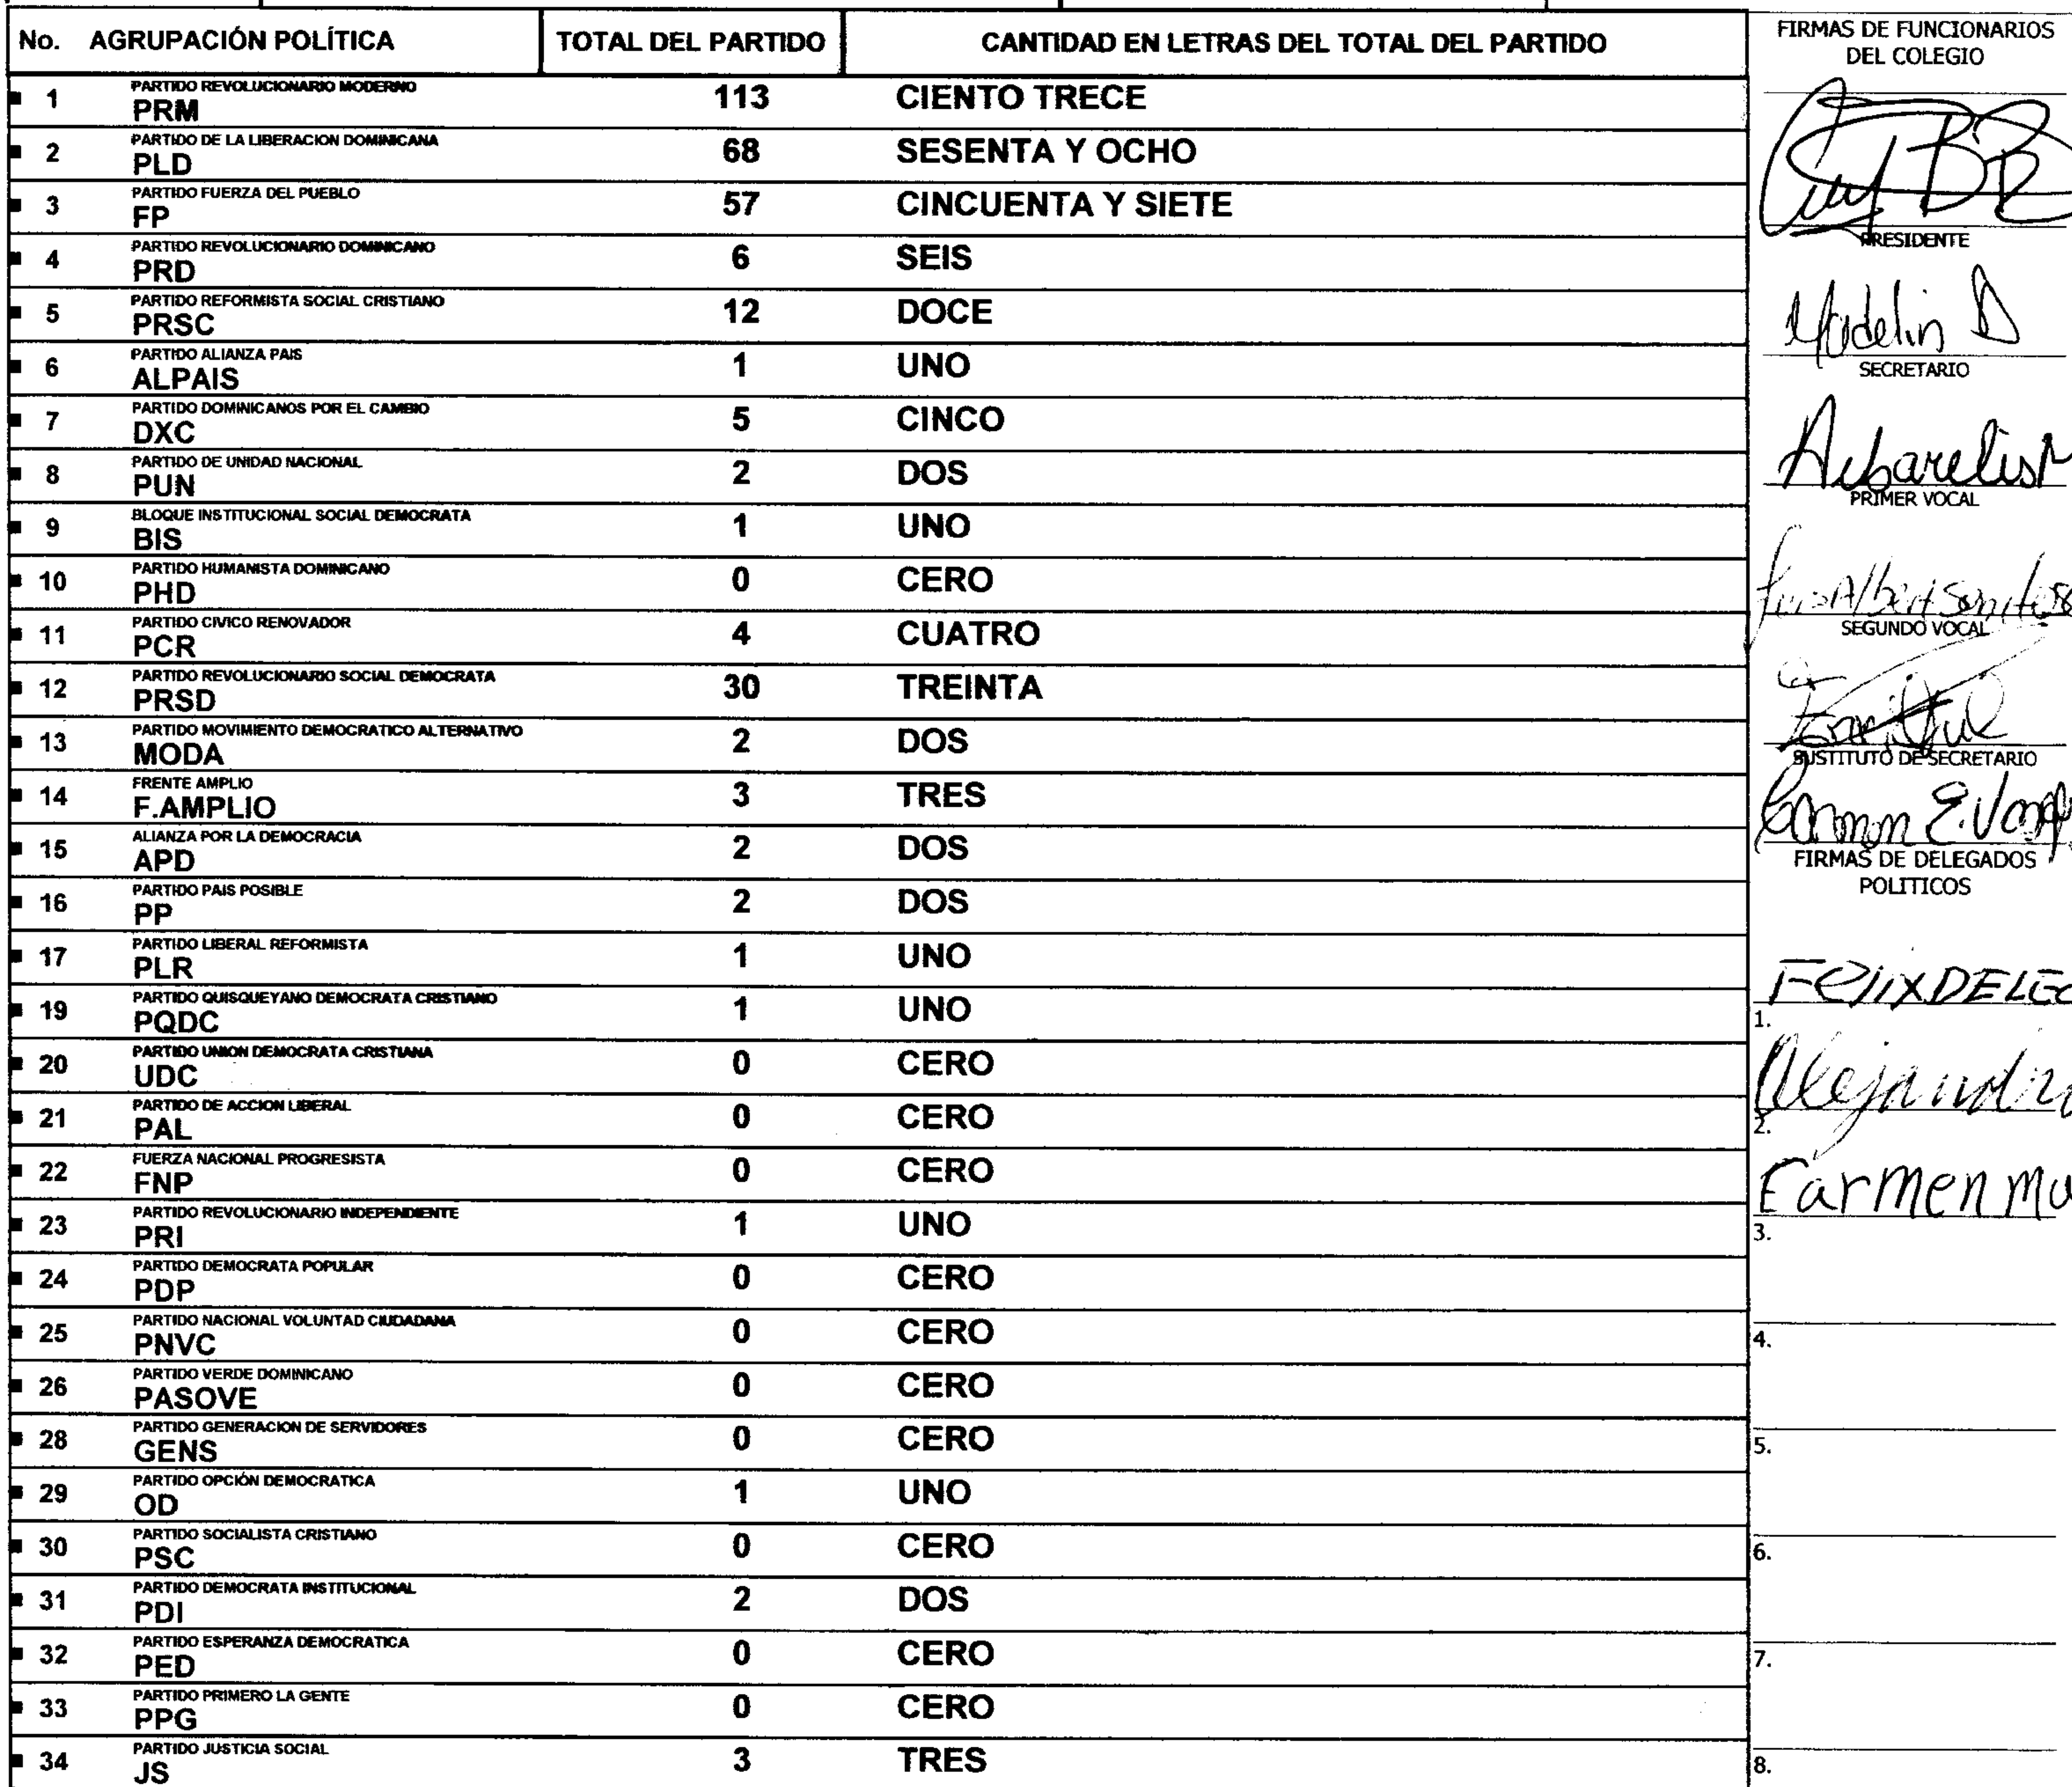 No. AGRUPACIÓN POLÍTICA TOTAL DEL PARTIDO CANTIDAD EN LETRAS DEL TOTAL DEL PARTIDO
1 PARTIDO REVOLUCIONARIO MODERNO
PRM 113 CIENTO TRECE
2 PARTIDO DE LA LIBERACION DOMINICANA
PLD 68 SESENTA Y OCHO
3 PARTIDO FUERZA DEL PUEBLO
FP 57 CINCUENTA Y SIETE
4 PARTIDO REVOLUCIONARIO DOMINICANO
PRD 6 SEIS
5 PARTIDO REFORMISTA SOCIAL CRISTIANO
PRSC 12 DOCE
6 PARTIDO ALIANZA PAIS
ALPAIS 1 UNO
7 PARTIDO DOMINICANOS POR EL CAMBIO
DXC 5 CINCO
8 PARTIDO DE UNIDAD NACIONAL
PUN 2 DOS
9 BLOQUE INSTITUCIONAL SOCIAL DEMOCRATA
BIS 1 UNO
10 PARTIDO HUMANISTA DOMINICANO
PHD 0 CERO
11 PARTIDO CIVICO RENOVADOR
PCR 4 CUATRO
12 PARTIDO REVOLUCIONARIO SOCIAL DEMOCRATA
PRSD 30 TREINTA
13 PARTIDO MOVIMIENTO DEMOCRATICO ALTERNATIVO
MODA 2 DOS
14 FRENTE AMPLIO
F.AMPLIO 3 TRES
15 ALIANZA POR LA DEMOCRACIA
APD 2 DOS
16 PARTIDO PAIS POSIBLE
PP 2 DOS
17 PARTIDO LIBERAL REFORMISTA
PLR 1 UNO
19 PARTIDO QUISQUEYANO DEMOCRATA CRISTIANO
PQDC 1 UNO
20 PARTIDO UNION DEMOCRATA CRISTIANA
UDC 0 CERO
21 PARTIDO DE ACCION LIBERAL
PAL 0 CERO
22 FUERZA NACIONAL PROGRESISTA
FNP 0 CERO
23 PARTIDO REVOLUCIONARIO INDEPENDIENTE
PRI 1 UNO
24 PARTIDO DEMOCRATA POPULAR
PDP 0 CERO
25 PARTIDO NACIONAL VOLUNTAD CIUDADANA
PNVC 0 CERO
26 PARTIDO VERDE DOMINICANO
PASOVE 0 CERO
28 PARTIDO GENERACION DE SERVIDORES
GENS 0 CERO
29 PARTIDO OPCIÓN DEMOCRATICA
OD 1 UNO
30 PARTIDO SOCIALISTA CRISTIANO
PSC 0 CERO
31 PARTIDO DEMOCRATA INSTITUCIONAL
PDI 2 DOS
32 PARTIDO ESPERANZA DEMOCRATICA
PED 0 CERO
33 PARTIDO PRIMERO LA GENTE
PPG 0 CERO
34 PARTIDO JUSTICIA SOCIAL
JS 3 TRES
FIRMAS DE FUNCIONARIOS
DEL COLEGIO
PRESIDENTE
SECRETARIO
PRIMER VOCAL
SEGUNDO VOCAL
SUSTITUTO DE SECRETARIO
FIRMAS DE DELEGADOS
POLITICOS
Felix
1.
Alejandro
2.
Carmen
3.
4.
5.
6.
7.
8.